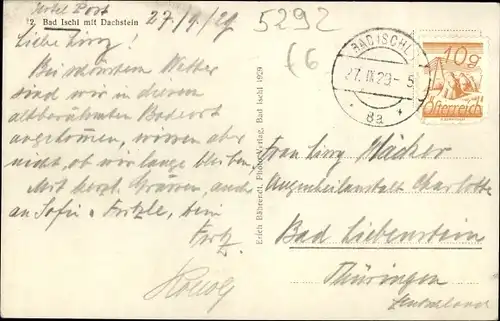 Hotel Post
27/9/29
5292
£6
2. Bad Ischl mit Dachstein
Liebe Lissy!
Bei schönstem Wetter
sind wir in diesem
altberühmten Badeort
angekommen, wissen aber
nicht, ob wir lange bleiben.
Mit herzl. Grüssen, auch
an Sofie u. Fritzle, dein
Fritz
Erich Bährendt, Photo-Verlag, Bad Ischl 1929.
BAD ISCHL
27.IX.29-5
* 8a *
10g
Österreich
Frau Lissy
Augenheilanstalt Charlotte
Bad Liebenstein
Thüringen